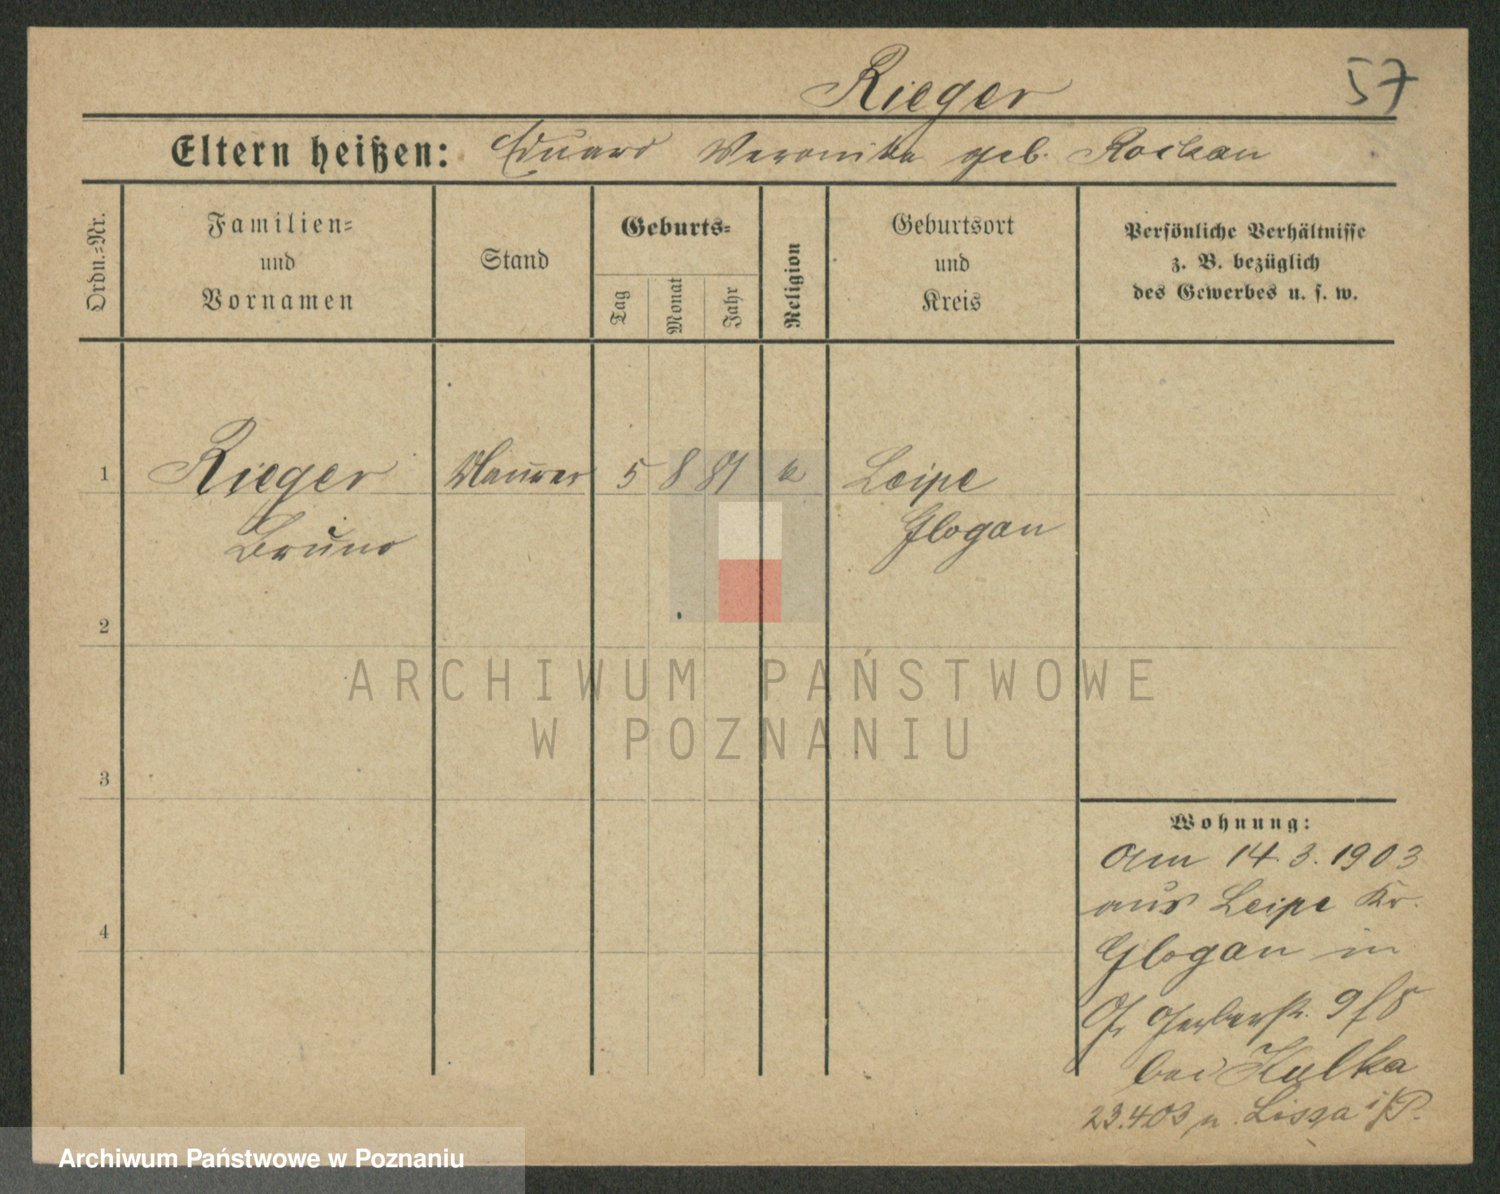 57
Rieger
Eltern heißen: Eduard Veronika geb. Rockau
Ordn.=Nr.
Familien=
und
Vornamen
Stand
Geburts=
Tag
Monat
Jahr
Religion
Geburtsort
und
Kreis
Persönliche Verhältnisse
z. B. bezüglich
des Gewerbes u. s. w.
1 Rieger Maurer 5 8 81 k Leipe
Bruno Glogau
2
3
4
Wohnung:
Am 14.3.1903
aus Leipe Kr.
Glogau in
Gr. Gerberstr. 9
bei Kulka
23.4.03 n. Lissa i/P.
ARCHIWUM PAŃSTWOWE
W POZNANIU
Archiwum Państwowe w Poznaniu